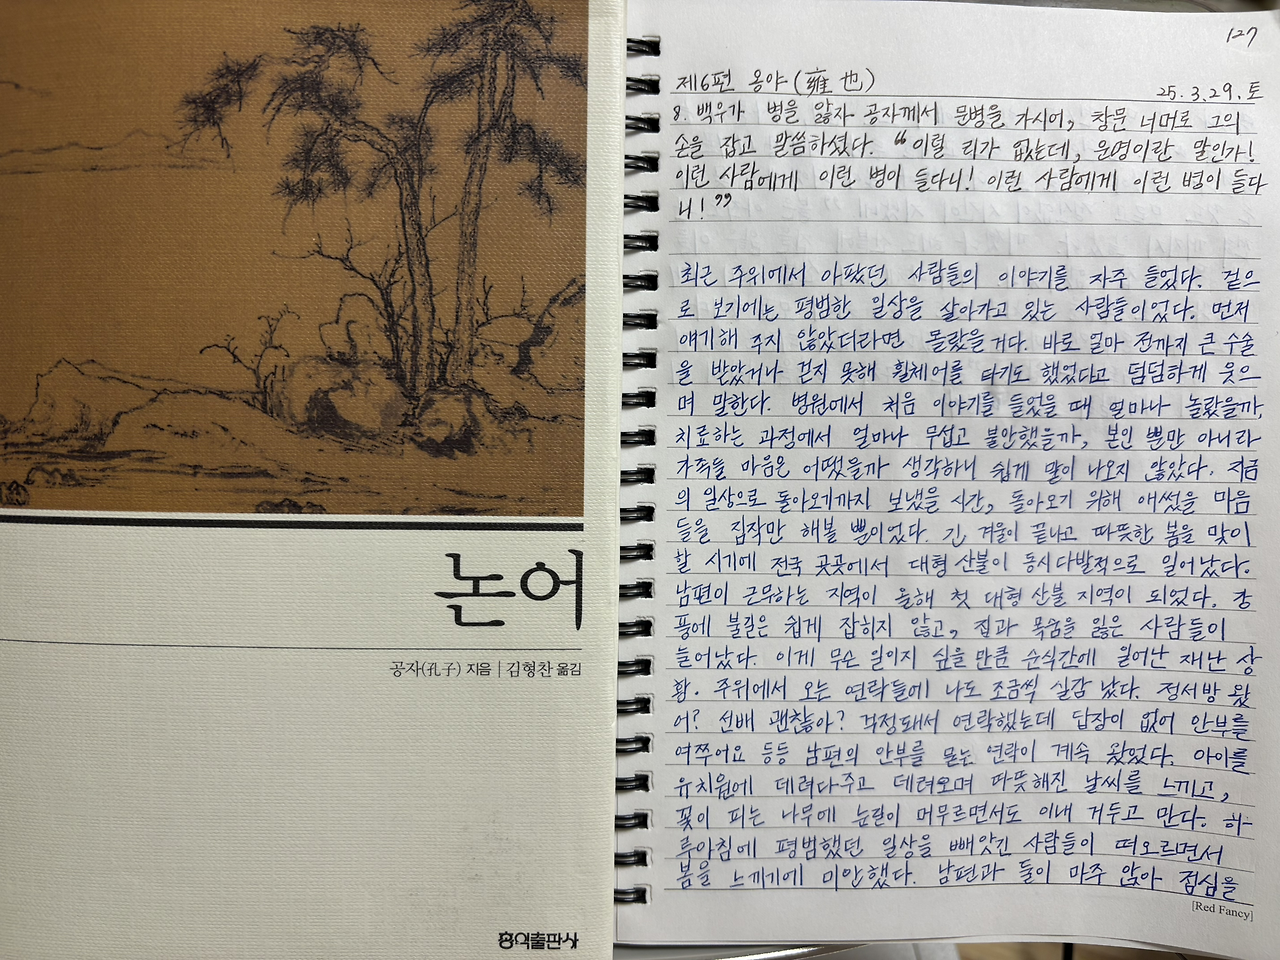 논어
공자(孔子) 지음 | 김형찬 옮김
홍익출판사
127
제6편 옹야(雍也)
25.3.29.토
8. 백우가 병을 앓자 공자께서 문병을 가시어, 창문 너머로 그의
손을 잡고 말씀하셨다. "이럴 리가 없는데, 운명이란 말인가!
이런 사람에게 이런 병이 들다니! 이런 사람에게 이런 병이 들다
니!"
최근 주위에서 아팠던 사람들의 이야기를 자주 들었다. 겉으
로 보기에는 평범한 일상을 살아가고 있는 사람들이었다. 먼저
얘기해 주지 않았더라면 몰랐을거다. 바로 얼마 전까지 큰 수술
을 받았거나 걷지 못해 휠체어를 타기도 했었다고 덤덤하게 웃으
며 말한다. 병원에서 처음 이야기를 들었을 때 얼마나 놀랐을까,
치료하는 과정에서 얼마나 무섭고 불안했을까, 본인 뿐만 아니라
가족들 마음은 어땠을까 생각하니 쉽게 말이 나오지 않았다. 지금
의 일상으로 돌아오기까지 보냈을 시간, 돌아오기 위해 애썼을 마음
들을 짐작만 해볼 뿐이었다. 긴 겨울이 끝나고 따뜻한 봄을 맞이
할 시기에 전국 곳곳에서 대형 산불이 동시다발적으로 일어났다.
남편이 근무하는 지역이 올해 첫 대형 산불 지역이 되었다. 강
풍에 불길은 쉽게 잡히지 않고, 집과 목숨을 잃은 사람들이
늘어났다. 이게 무슨 일이지 싶을 만큼 순식간에 일어난 재난 상
황. 주위에서 오는 연락들에 나도 조금씩 실감 났다. 정서방 왔
어? 선배 괜찮아? 걱정돼서 연락했는데 답장이 없어 안부를
여쭈어요 등등 남편의 안부를 묻는 연락이 계속 왔었다. 아이를
유치원에 데려다주고 데려오며 따뜻해진 날씨를 느끼고,
꽃이 피는 나무에 눈길이 머무르면서도 이내 거두고 만다. 하
루아침에 평범했던 일상을 빼앗긴 사람들이 떠오르면서
봄을 느끼기에 미안했다. 남편과 둘이 마주 앉아 점심을
[Red Fancy]